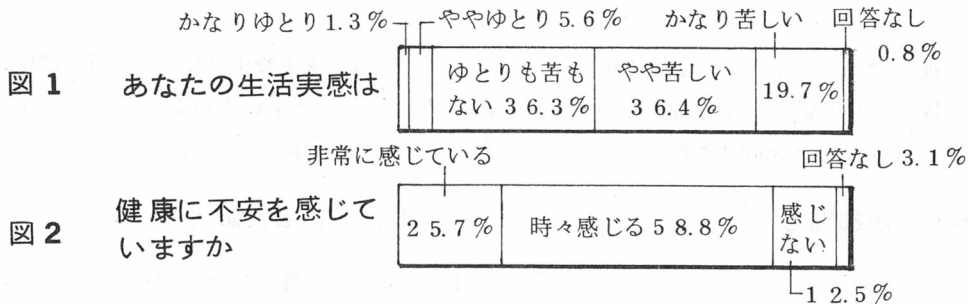 かなりゆとり1.3% ややゆとり5.6% かなり苦しい 回答なし
0.8%
図1 あなたの生活実感は
ゆとりも苦も
ない 36.3%
やや苦しい
36.4%
19.7%
非常に感じている 回答なし3.1%
図2 健康に不安を感じて
いますか
25.7% 時々感じる58.8% 感じ
ない
12.5%